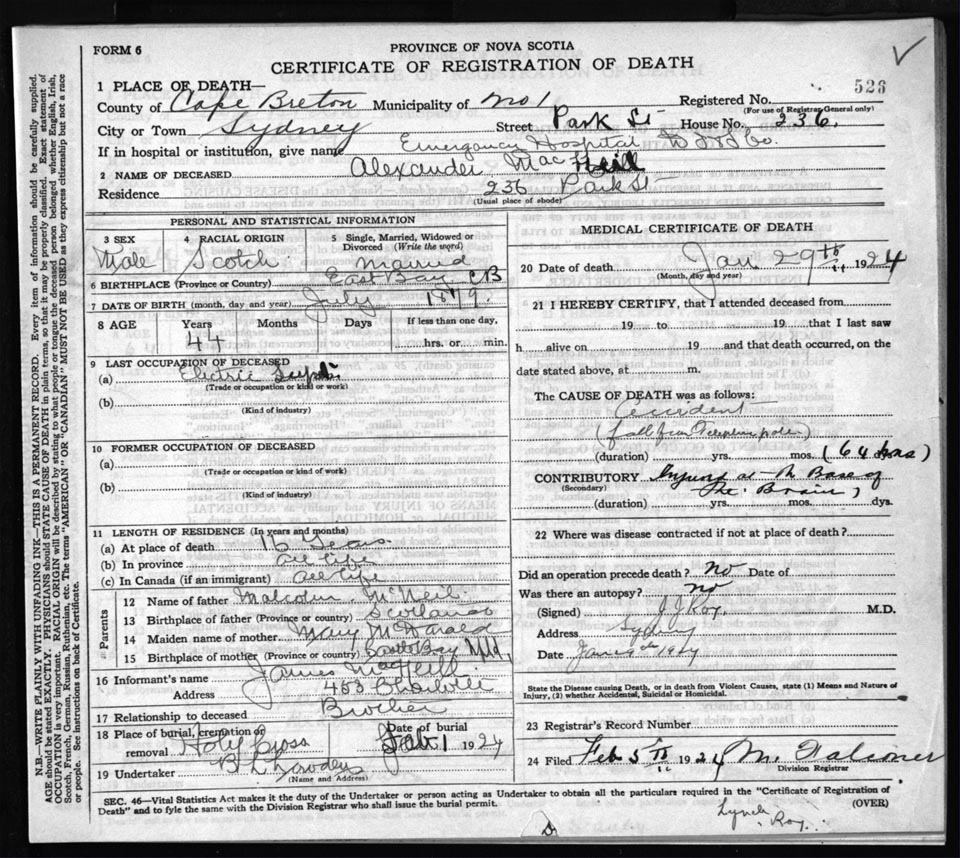 FORM 6
PROVINCE OF NOVA SCOTIA
CERTIFICATE OF REGISTRATION OF DEATH
526
1 PLACE OF DEATH—
County of Cape Breton Municipality of No 1 Registered No.
(For use of Registrar General only)
City or Town Sydney Street Park St— House No. 236
If in hospital or institution, give name Emergency Hospital
2 NAME OF DECEASED Alexander MacNeill
Residence 236 Park St—
(Usual place of abode)
PERSONAL AND STATISTICAL INFORMATION
3 SEX Male
4 RACIAL ORIGIN Scotch
5 Single, Married, Widowed or Divorced (Write the word) Married
6 BIRTHPLACE (Province or Country) East Bay CB
7 DATE OF BIRTH (month, day and year) July 1879
8 AGE Years Months Days If less than one day,
44 hrs. or min.
9 LAST OCCUPATION OF DECEASED
(a) Electric
(Trade or occupation or kind of work)
(b)
(Kind of industry)
10 FORMER OCCUPATION OF DECEASED
(a)
(Trade or occupation or kind of work)
(b)
(Kind of industry)
11 LENGTH OF RESIDENCE (In years and months)
(a) At place of death 16 Years
(b) In province all life
(c) In Canada (if an immigrant) all life
Parents
12 Name of father Malcolm McNeil
13 Birthplace of father (Province or country) Scotland
14 Maiden name of mother Mary McDonald
15 Birthplace of mother (Province or country) Bay Nfld.
16 Informant's name James MacNeill
Address 453 Charlotte
17 Relationship to deceased Brother
18 Place of burial, cremation or removal Holy Cross
Date of burial Feb 1 1924
19 Undertaker
(Name and Address)
MEDICAL CERTIFICATE OF DEATH
20 Date of death Jan. 29th 1924
(Month, day and year)
21 I HEREBY CERTIFY, that I attended deceased from
19 to 19 that I last saw
h alive on 19 and that death occurred, on
date stated above, at m.
The CAUSE OF DEATH was as follows:
Accident
(fall from pole)
(duration) yrs. mos. (64 hrs)
CONTRIBUTORY Injury at the Base of
(Secondary) the Brain
(duration) yrs. mos. dys.
22 Where was disease contracted if not at place of death?
Did an operation precede death? No Date of
Was there an autopsy? no
(Signed) J J Roy. M.D.
Address Sydney
Date
State the Disease causing Death, or in death from Violent Causes, state (1) Means and Nature of Injury, and (2) whether Accidental, Suicidal or Homicidal.
23 Registrar's Record Number
24 Filed Feb 5th 1924 M. Falconer
Division Registrar
SEC. 46—Vital Statistics Act makes it the duty of the Undertaker or person acting as Undertaker to obtain all the particulars required in the "Certificate of Registration of
Death" and to fyle the same with the Division Registrar who shall issue the burial permit.
(OVER)
Lynch
Roy
N.B.—WRITE PLAINLY WITH UNFADING INK—THIS IS A PERMANENT RECORD. Every item of information should be carefully supplied.
AGE should be stated EXACTLY. PHYSICIANS should STATE CAUSE OF DEATH in plain terms, so that it may be properly classified. Exact statement of
OCCUPATION is very important. RACIAL ORIGIN will be described by stating to what people or tongue the deceased person belonged whether English, Irish,
Scotch, French, German, Russian, Ruthenian, etc. The terms "AMERICAN" or "CANADIAN" MUST NOT BE USED as they express citizenship but not a race
or people. See instructions on back of Certificate.